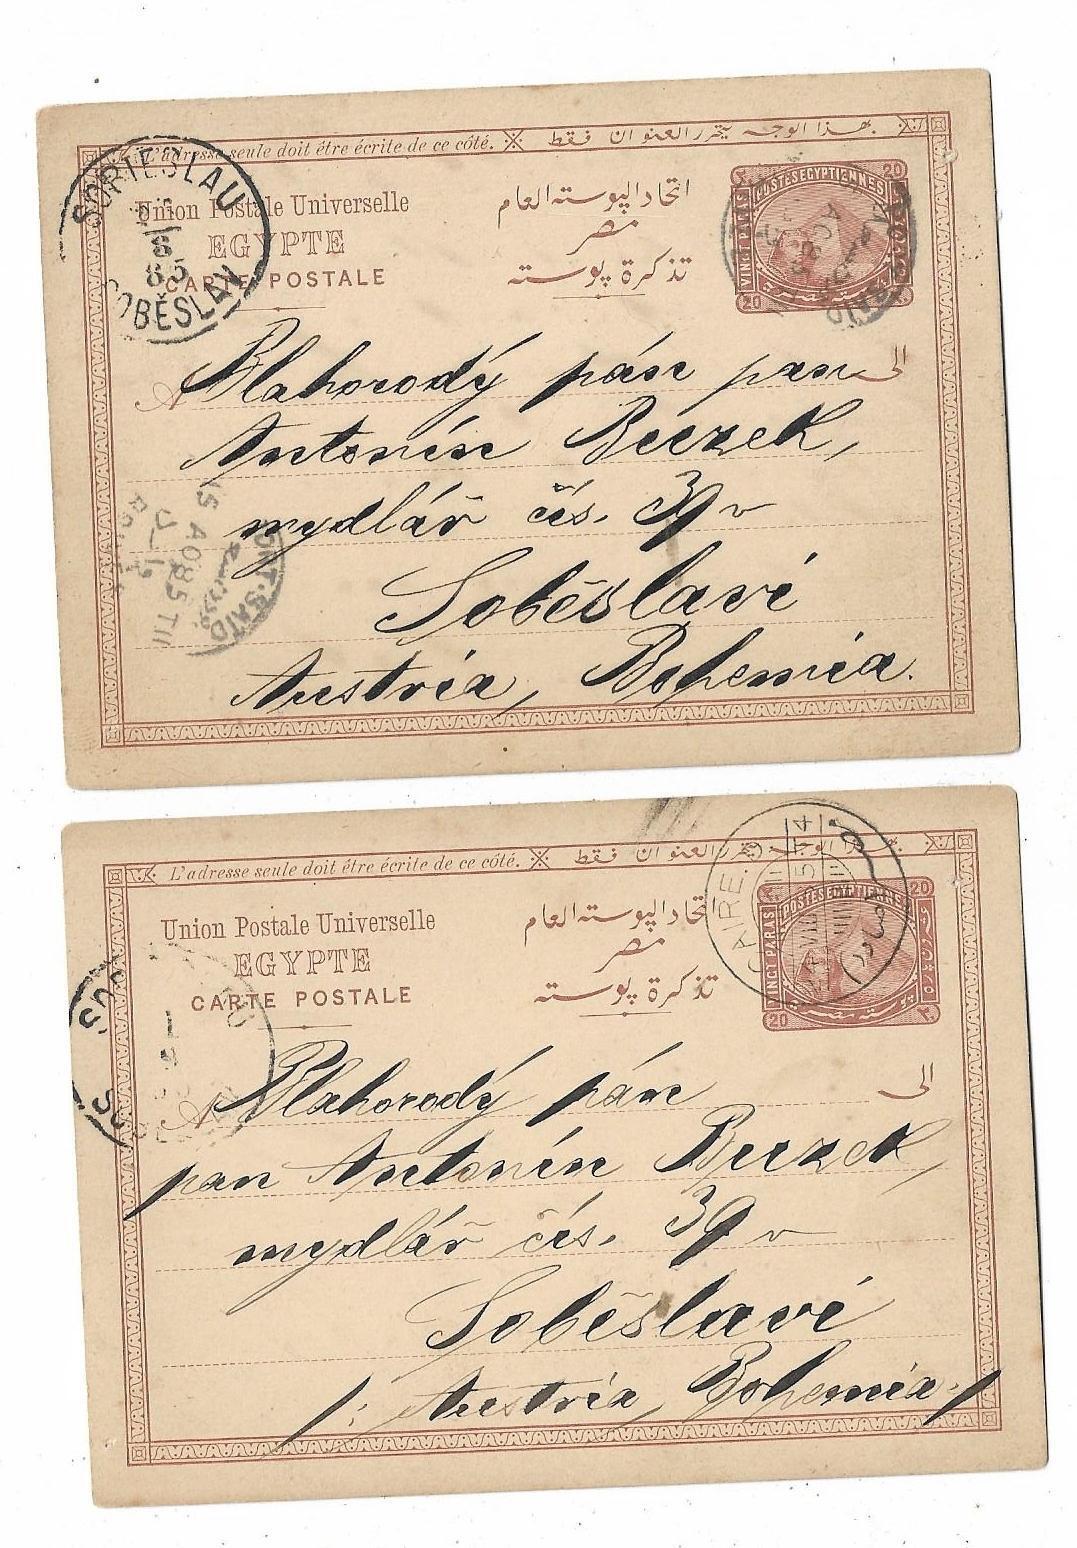 L'adresse seule doit être écrite de ce côté. بهذا الوجه يتحرر العنوان فقط
SOBIESLAU
8
85
SOBĚSLAV
Union Postale Universelle
EGYPTE
CARTE POSTALE
اتحاد البوسته العام
مصر
تذكرة بوسته
20
POSTES EGYPTIENNES
VINGT PARAS
20
A Blahorodý pán pan الى
Antonín Buzek,
mydlář čís. 39 v
Soběslavi
Austria, Bohemia.
PORT-SAID
15 AO 85 TII
L'adresse seule doit être écrite de ce côté. بهذا الوجه يتحرر العنوان فقط
Union Postale Universelle
EGYPTE
CARTE POSTALE
اتحاد البوسته العام
مصر
تذكرة بوسته
CAIRE
20
POSTES EGYPTIENNES
VINGT PARAS
20
A Blahorodý pán الى
pan Antonín Buzek,
mydlář čís. 39 v
Soběslavi
/: Austria, Bohemia. /